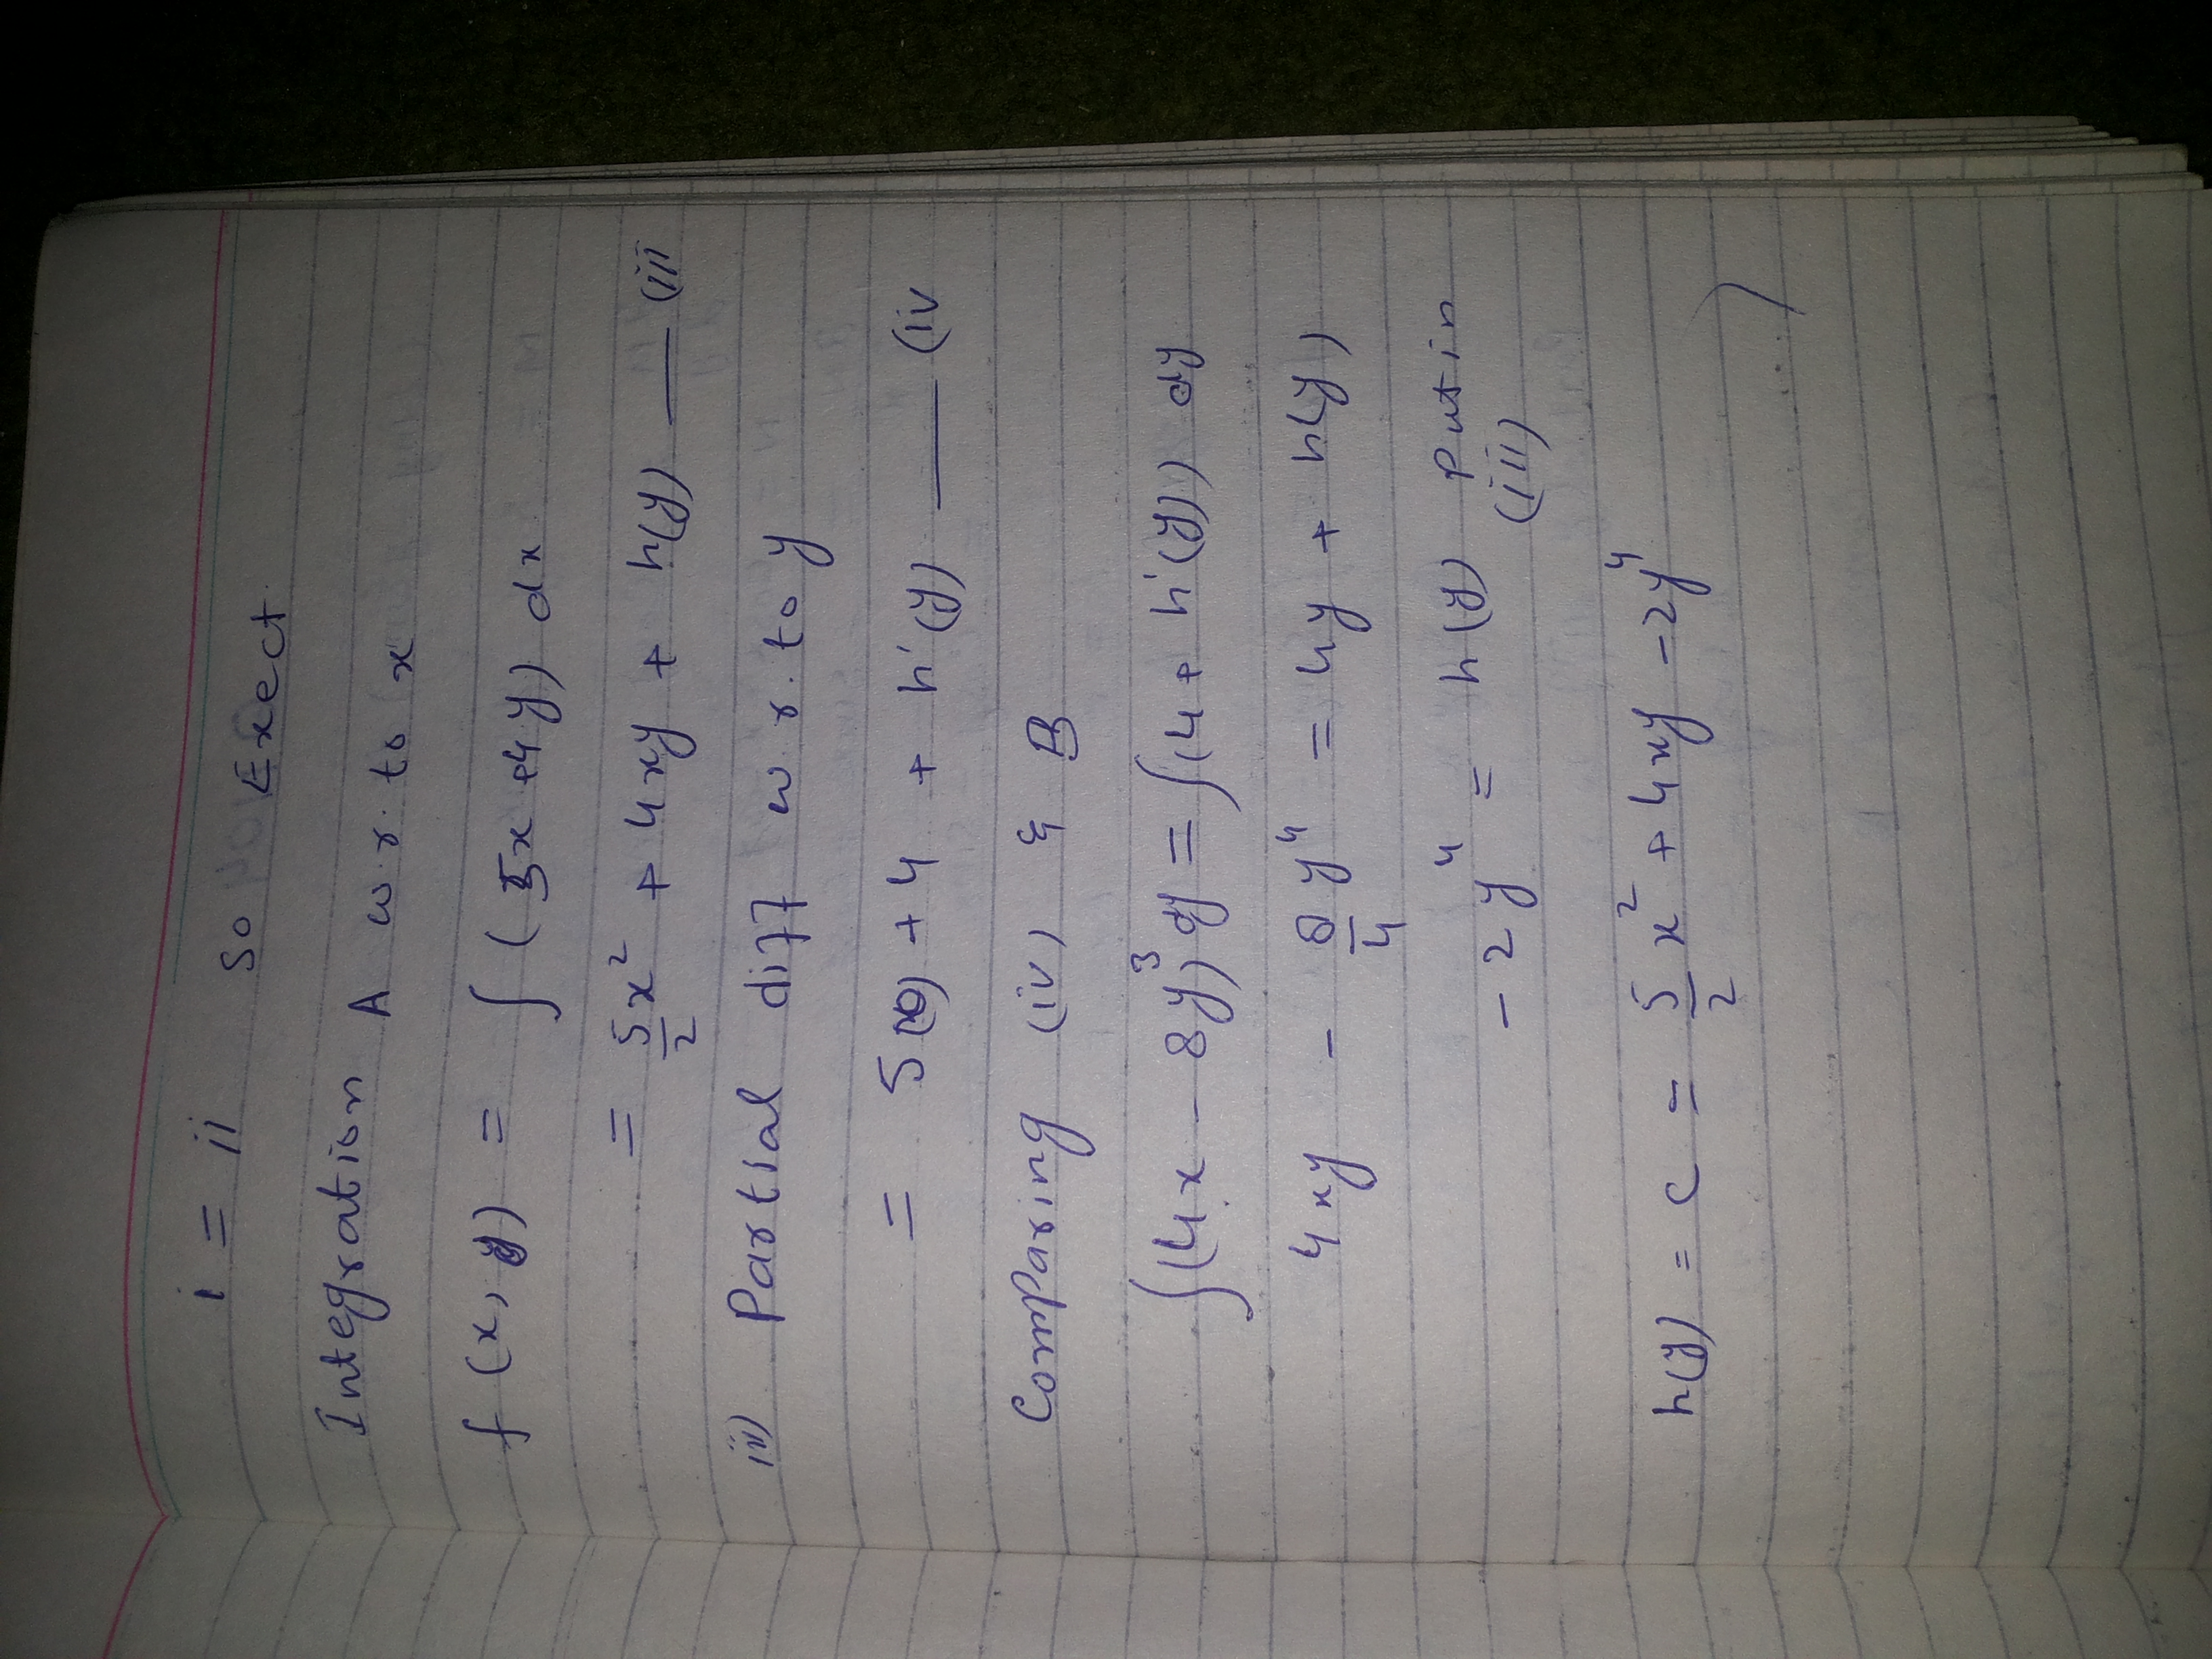 i = ii so Exect
Integration A w.r. to x
f (x, y) = ∫ (5x + 4y) dx
= 5/2 x² + 4xy + h(y) — (iii
iii) Partial diff w.r. to y
= 5(0) + 4 + h'(y) — (iv
Comparing (iv) & B
∫(4x - 8y³) dy = ∫(4 + h'(y)) dy
4xy - 8/4 y⁴ = 4y + h(y)
-2y⁴ = h(y) Put in
(iii)
h(y) = c = 5/2 x² + 4xy - 2y⁴